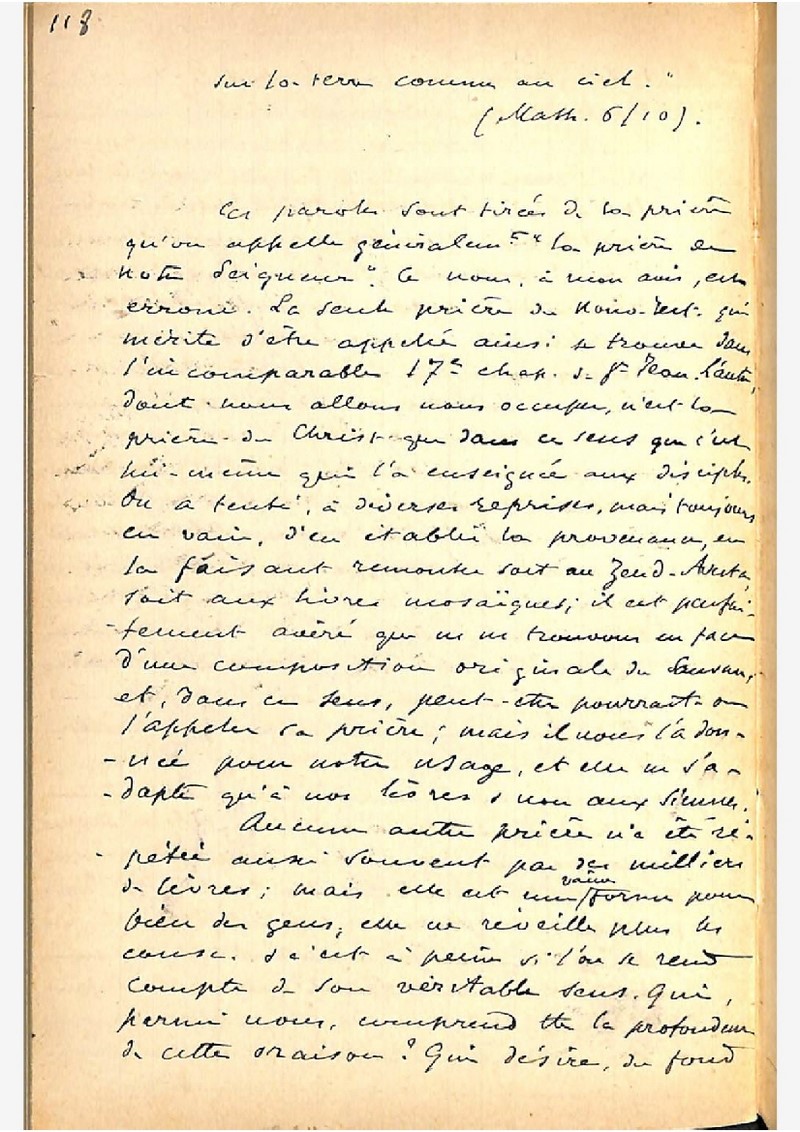 118
sur la terre comme au ciel."
(Matth. 6/10).
Ces paroles sont tirées de la prière
qu'on appelle généralem^t "la prière de
notre Seigneur". Ce nom, à mon avis, est
erroné. La seule prière du Nouv-Test. qui
mérite d'être appelée ainsi se trouve dans
l'incomparable 17e chap. de St Jean. L'autre,
dont nous allons nous occuper, n'est la
prière du Christ que dans ce sens que c'est
lui-même qui l'a enseignée aux disciples.
On a tenté, à diverses reprises, mais toujours
en vain, d'en établir la provenance, en
la faisant remonter soit au Zend-Avesta,
soit aux livres mosaïques; il est parfai-
-tement avéré que ns ns trouvons en face
d'une composition originale du Sauveur,
et, dans ce sens, peut-être pourrait-on
l'appeler sa prière; mais il nous l'a don-
-née pour notre usage, et elle ne s'a-
-dapte qu'à nos lèvres & non aux siennes.
Aucune autre prière n'a été ré-
pétée aussi souvent par des milliers
de lèvres; mais elle est une vaine forme pour
bien des gens; elle ne réveille plus les
consc. & c'est à peine si l'on se rend
compte de son véritable sens. Qui,
parmi nous, comprend tte la profondeur
de cette oraison? Qui désire, du fond